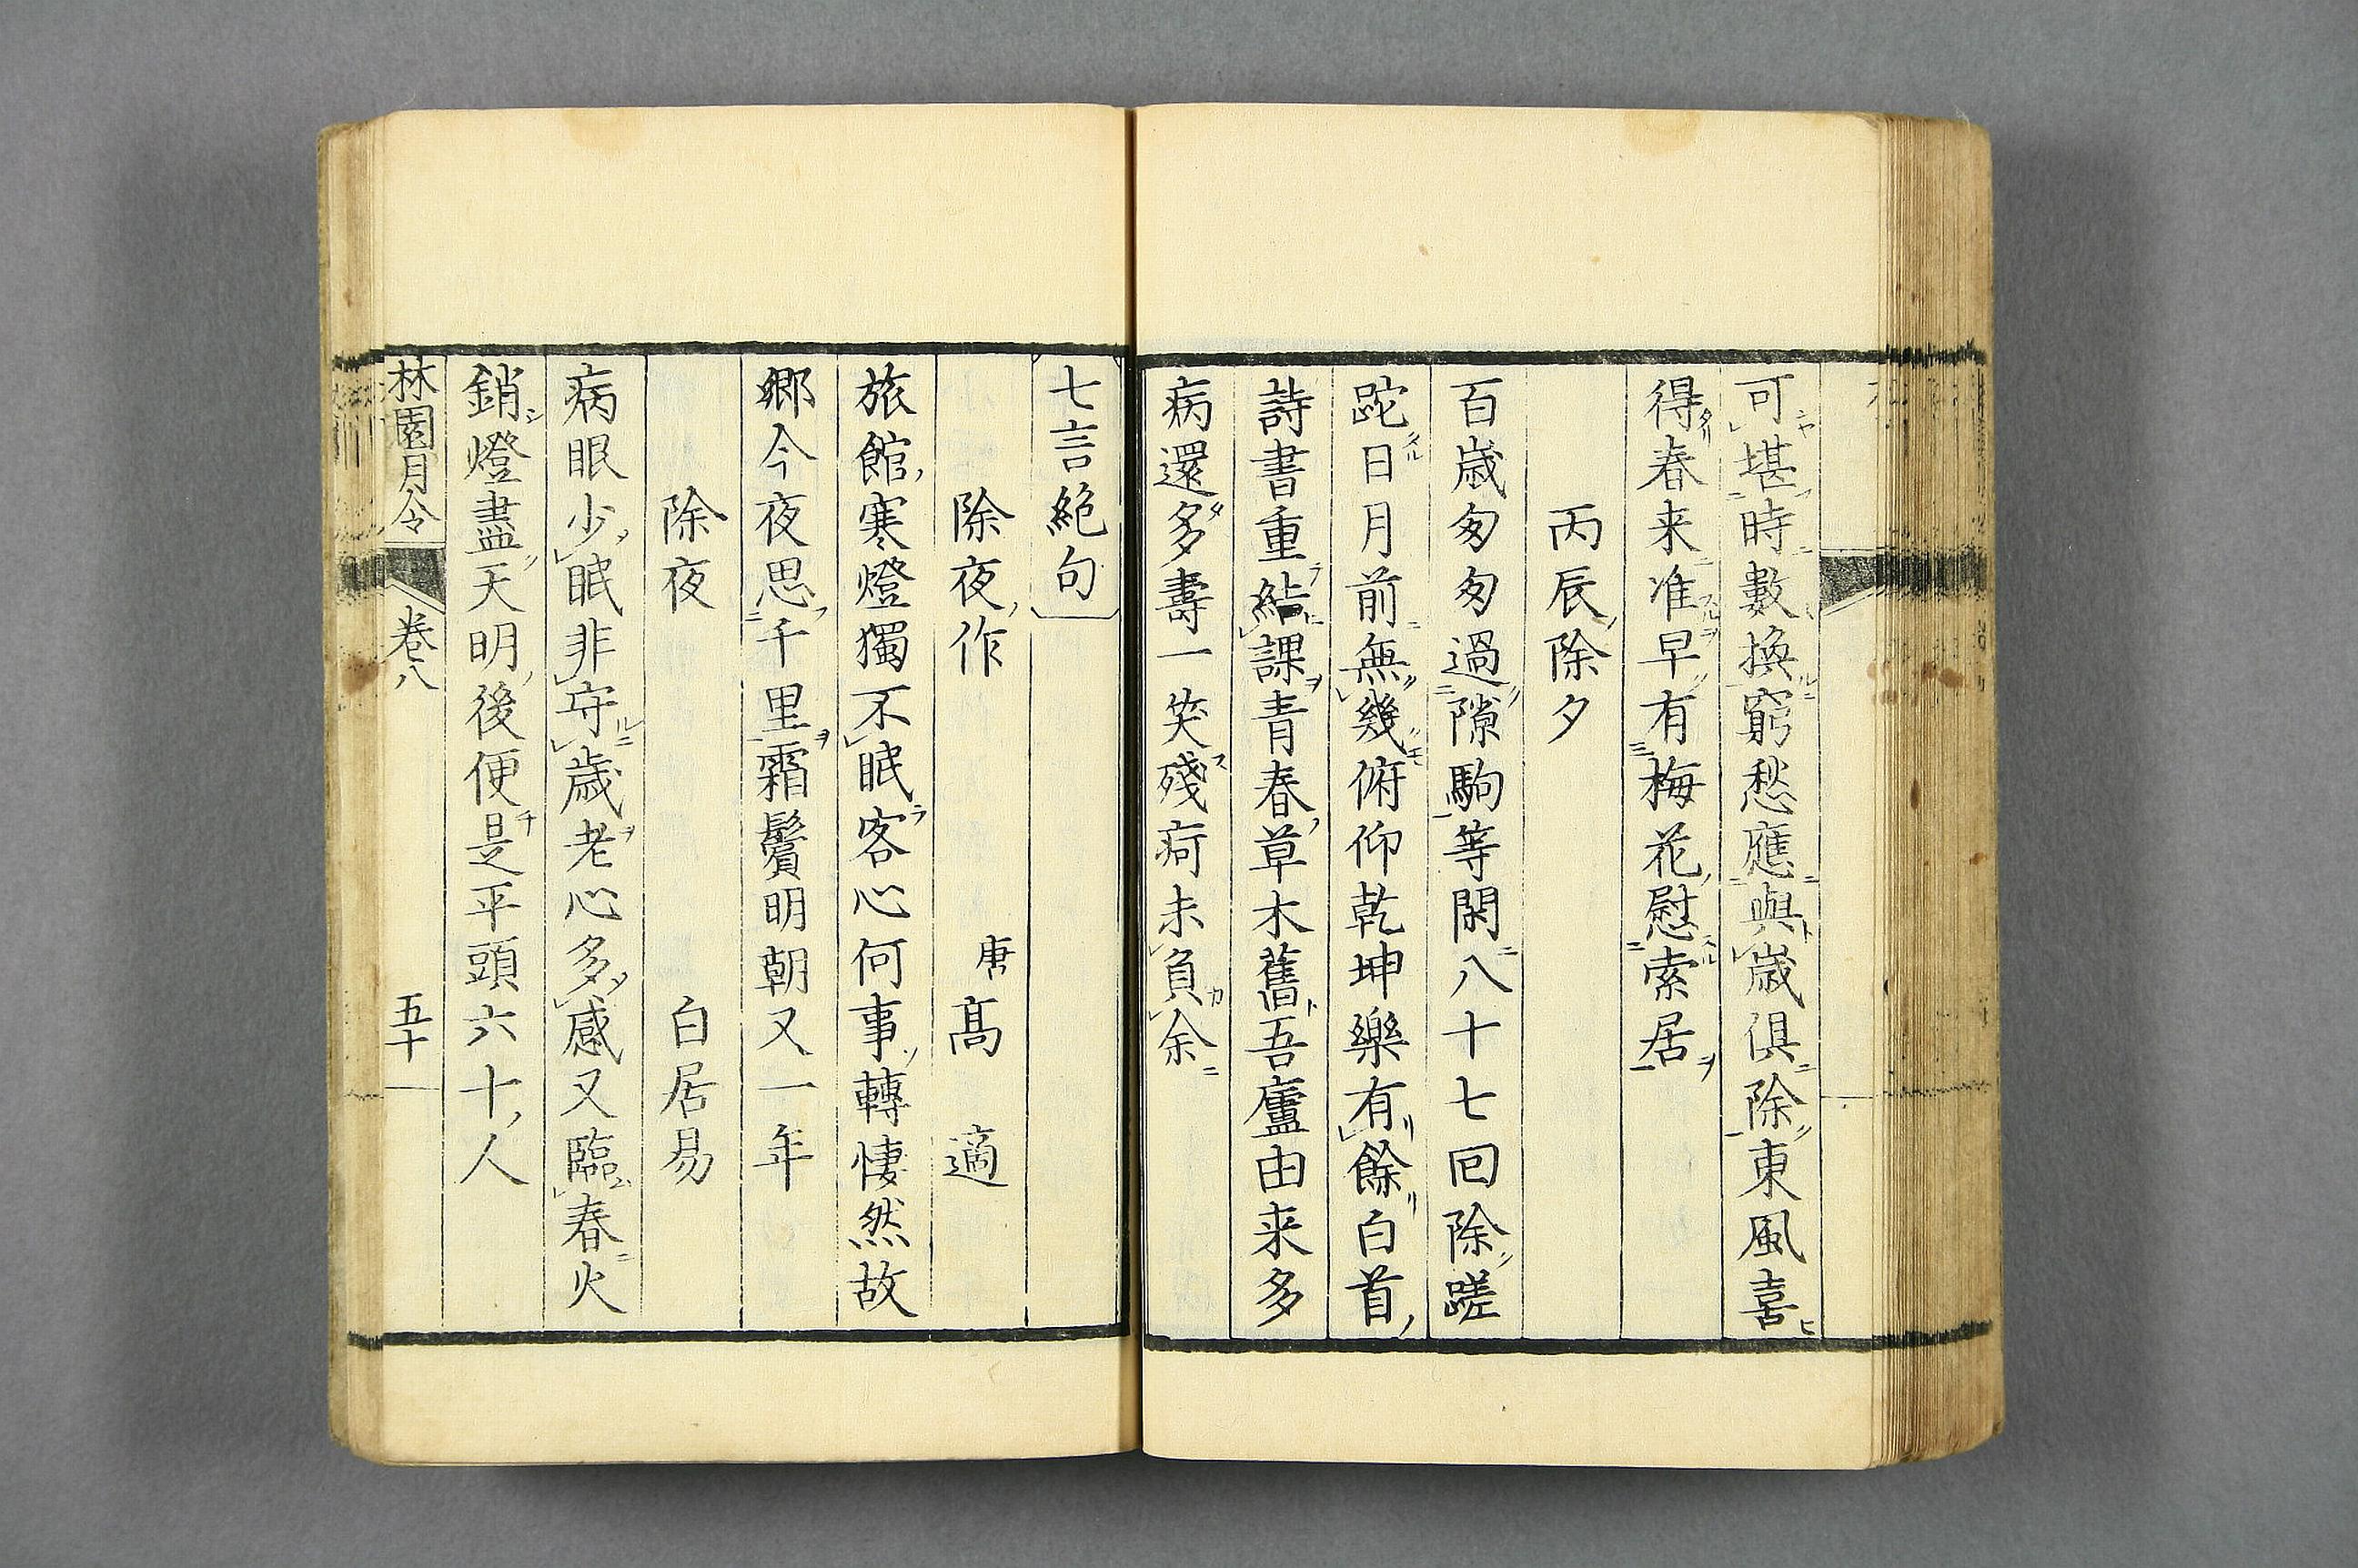 可堪時數換窮愁應與歳俱除東風喜
得春来准早有梅花慰索居
丙辰除夕
百歳匆匆過隙駒等閑八十七回除蹉
跎日月前無幾俯仰乾坤樂有餘白首
詩書重結課青春草木舊吾廬由来多
病還多壽一笑殘疴未負余
七言絶句
除夜作 唐 高適
旅館寒燈獨不眠客心何事轉悽然故
郷今夜思千里霜鬢明朝又一年
除夜 白居易
病眼少眠非守歳老心多感又臨春火
銷燈盡天明後便是平頭六十人
林園月令 卷八 五十一